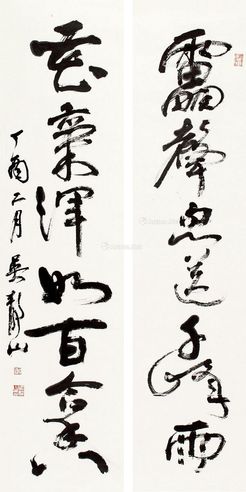 靁聲忽送千峰雨
花氣渾如百合香
丁酉二月吳靜山